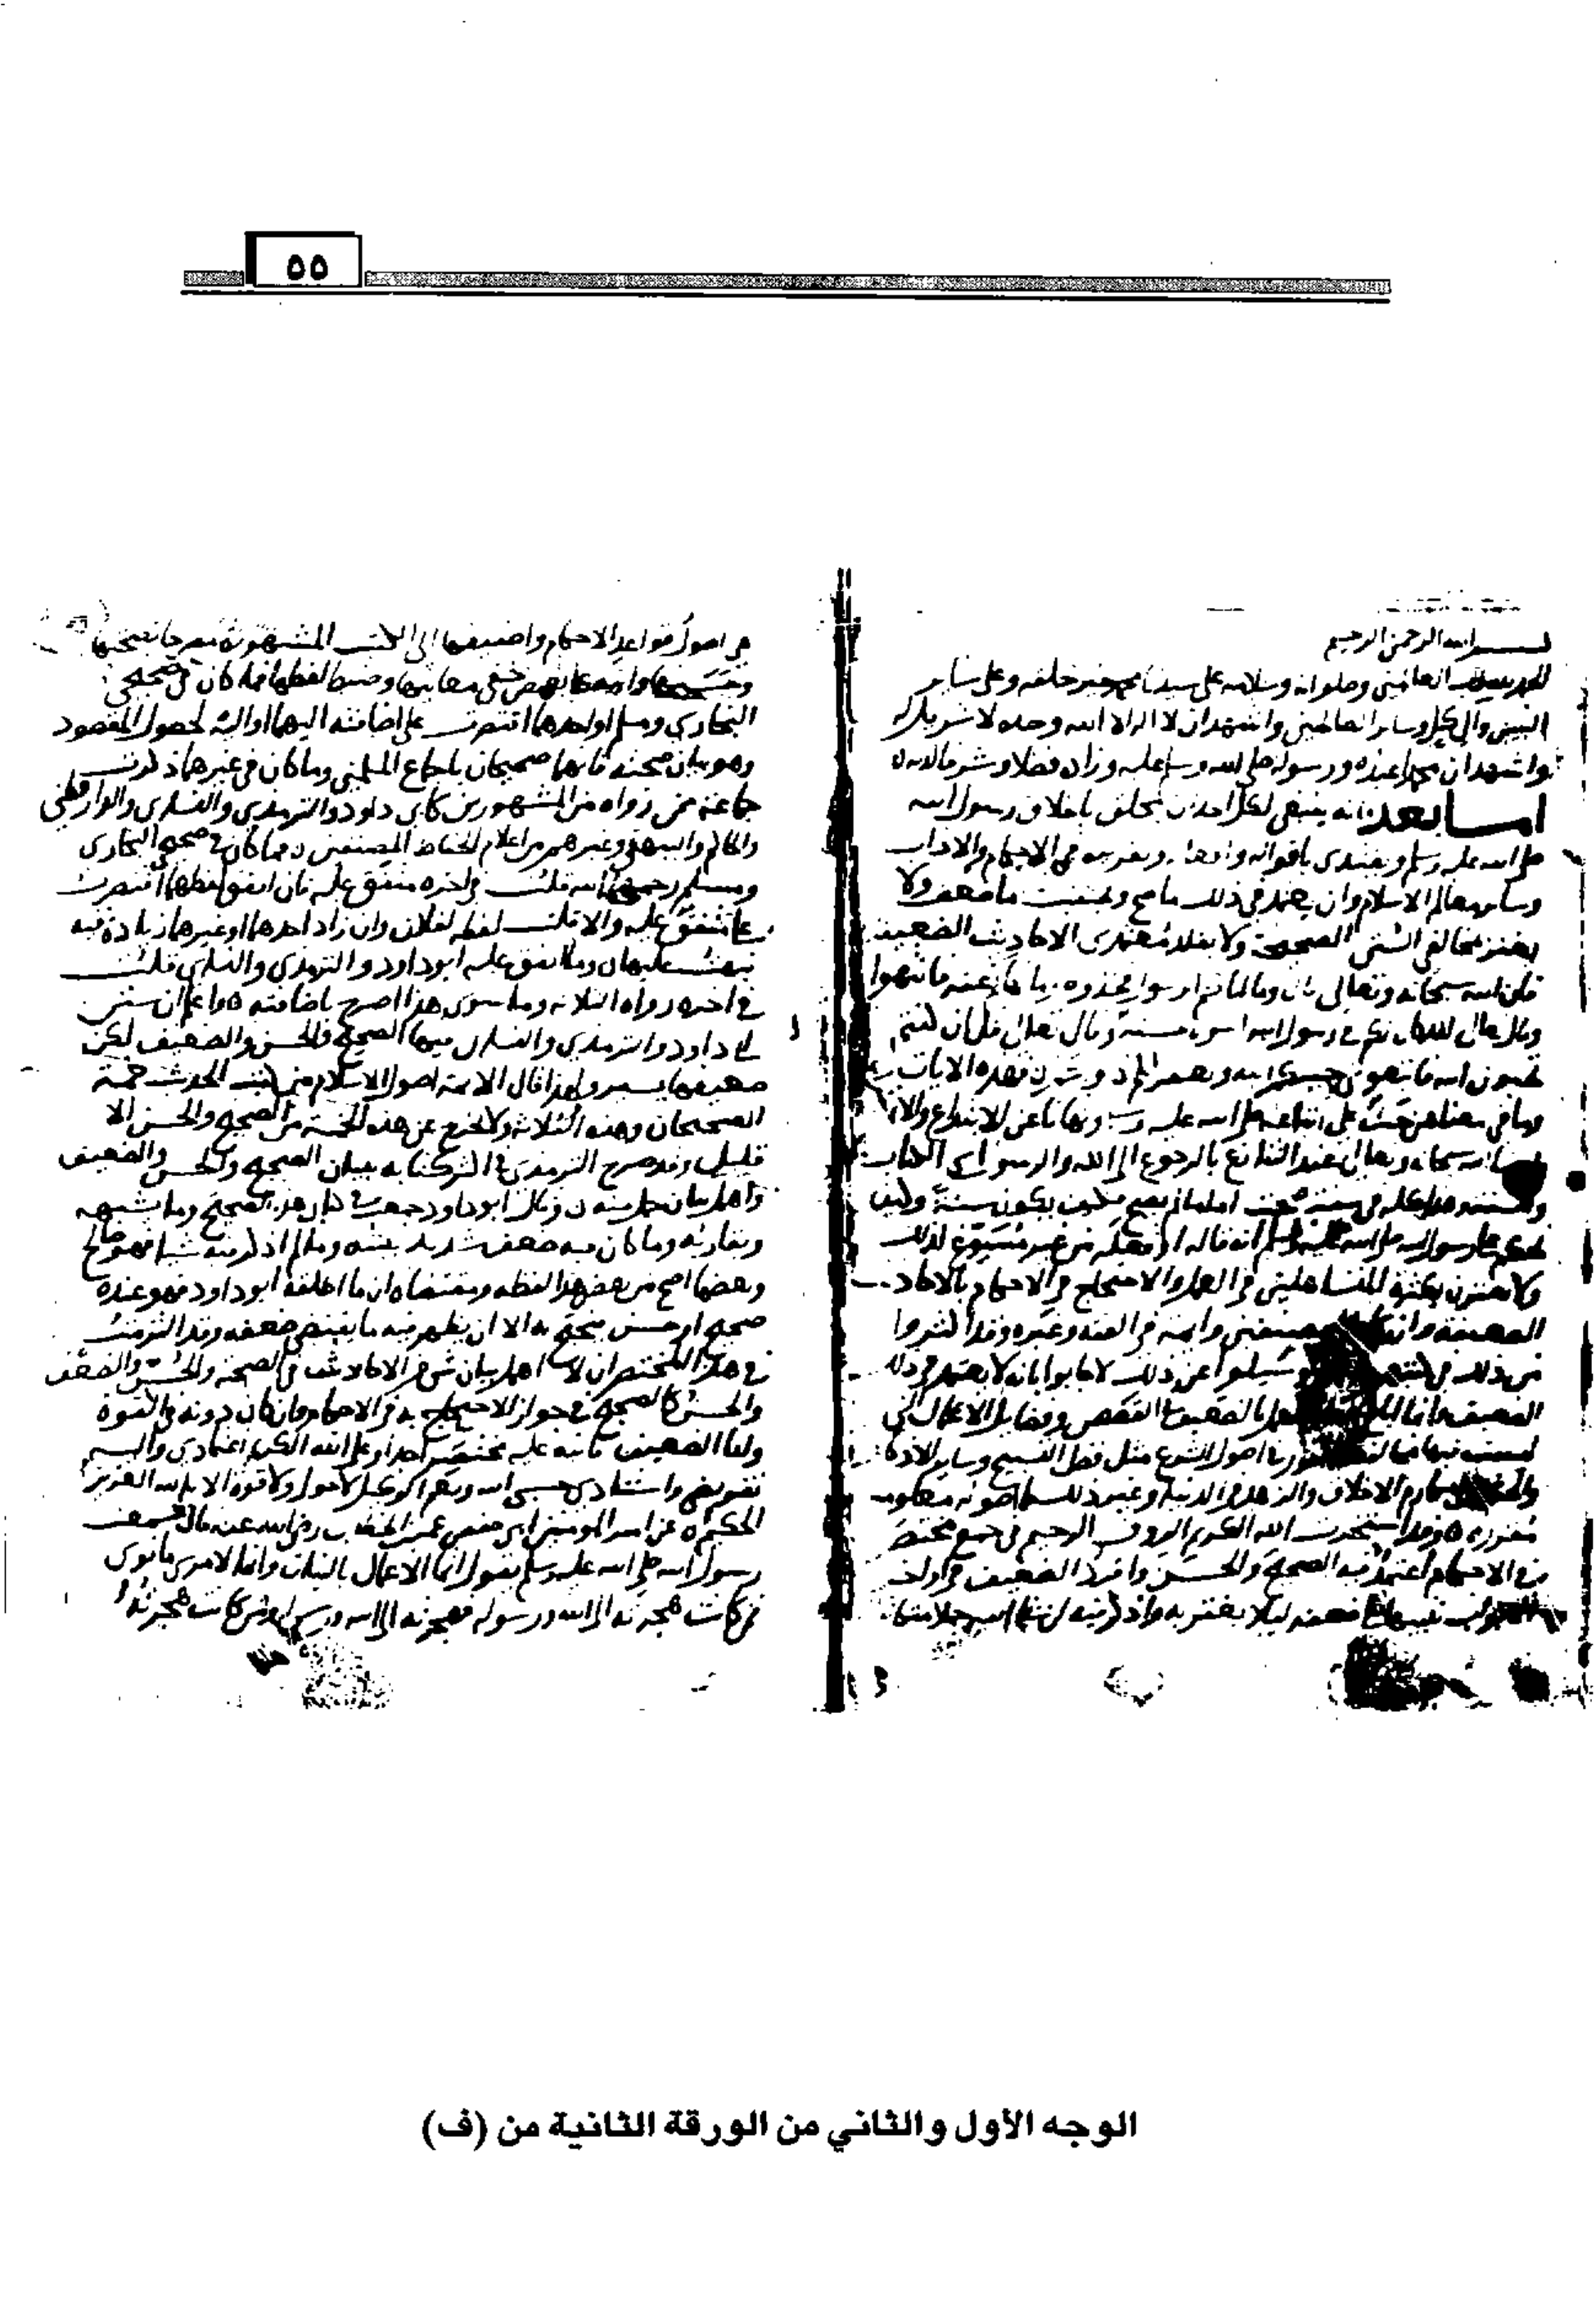 ٥٥
بسم الله الرحمن الرحيم
الحمد لله رب العالمين وصلواته وسلامه على سيدنا محمد خير خلقه وعلى ساير
النبيين وال كل وساير الصالحين واشهد ان لا اله الا الله وحده لا شريك له
واشهد ان محمدا عبده ورسوله صلى الله وسلم عليه وزاده فضلا وشرفا لديه
اما بعد فانه ينبغي لكل احد ان يتخلق باخلاق رسول الله
صلى الله عليه وسلم ويقتدي باقواله وافعاله وتقريره في الاحكام والاداب
وساير معالم الاسلام وان يعتمد في ذلك ما صح ويجتنب ما ضعف ولا
يغتر بمخالفي السنن الصحيحة ولا يقلد معتمدي الاحاديث الضعيفة
فان الله سبحانه وتعالى قال وما اتاكم الرسول فخذوه وما نهاكم عنه فانتهوا
وقال تعالى لقد كان لكم في رسول الله اسوة حسنة وقال تعالى قل ان كنتم
تحبون الله فاتبعوني يحببكم الله ويغفر لكم ذنوبكم فهذه الايات
وما في معناهن حث على اتباعه صلى الله عليه وسلم ونهانا عن الابتداع والاختراع
الله سبحانه وتعالى عند التنازع بالرجوع الى الله والرسول اي الكتاب
والسنة وهذا كله في سنة صحت اما ما لم يصح فكيف يكون سنة وكيف
يحكم على رسول الله صلى الله عليه وسلم انه قاله او فعله من غير مسوغ لذلك
ولا تغترن بكثرة المتساهلين في العمل والاحتجاج في الاحكام بالاحاديث
الضعيفة وان كانوا مصنفين وايمة في الفقه وغيره وقد اكثروا
من ذلك في كتبهم ولو سيلوا عن ذلك لاجابوا بانه لا يعتمد في ذلك
الضعيف وانما العمل بالضعيف في القصص وفضايل الاعمال التي
ليست فيها مخالفة لما تقرر في اصول الشرع مثل فضل التسبيح وساير الاذكار
والحث على مكارم الاخلاق والزهد في الدنيا وغير ذلك مما اصوله معلومة
مقررة وقد استخرت الله الكريم الرووف الرحيم في جمع مختصر
في الاحكام اعتمد فيه الصحيح والحسن وافرد الضعيف في اواخر
الابواب تنبيها على ضعفه ليلا يغتر به واذكر فيه ان شاء الله جملا متكاثرة
هي اصول قواعد الاحكام واضيفها الى الكتب المشهورة مصرحا بصحتها
وحسنها واضعا بعض خفي معانيها وضبط لفظها فما كان في صحيحي
البخاري ومسلم او احدهما اقتصرت على اضافته اليهما او اليه لحصول المقصود
وهو بيان صحته فانهما صحيحان باجماع المسلمين وما كان في غيرهما ذكرت
جماعة ممن رواه من المشهورين كابي داود والترمذي والنساي والدارقطني
والحاكم والبيهقي وغيرهم من اعلام الحفاظ المصنفين فما كان في صحيح البخاري
ومسلم رحمهما الله قلت في اخره متفق عليه فان اتفق لفظهما اقتصرت
على متفق عليه والا قلت لفظه لفلان وان زاد احدهما او غيرهما زيادة فيه
نبهت عليها وما اتفق عليه ابو داود والترمذي والنساي قلت
في اخره رواه الثلاثة وما سوى هذا اصرح باضافته واعلم ان سنن
ابي داود والترمذي والنساي فيها الصحيح والحسن والضعيف لكن
ضعيفها يسير ولهذا قال الايمة اصول الاسلام من كتب الحديث خمسة
الصحيحان وهذه الثلاثة ولا يخرج عن هذه الخمسة من الصحيح والحسن الا
قليل وقد صرح الترمذي في اكثر كتابه ببيان الصحيح والحسن والضعيف
واهمل بيان جملة منه وقال ابو داود جمعت في كتابي هذا الصحيح وما يشبهه
ويقاربه وما كان فيه ضعف شديد بينته وما لم اذكر فيه شيا فهو صالح
وبعضها اصح من بعض هذا لفظه ومقتضاه ان ما اطلقه ابو داود فهو عنده
صحيح او حسن يحتج به الا ان يظهر فيه ما يقتضي ضعفه وقد التزمت
في هذا المختصر ان لا اهمل بيان شي من الاحاديث في الصحة والحسن والضعف
والحسن كالصحيح في جواز الاحتجاج به في الاحكام وان كان دونه في القوة
واما الضعيف فانبه عليه مختصرا جدا وعلى الله الكريم اعتمادي واليه
تفويضي واستنادي حسبي الله ونعم الوكيل ولا حول ولا قوة الا بالله العزيز
الحكيم عن امير المومنين ابي حفص عمر بن الخطاب رضي الله عنه قال سمعت
رسول الله صلى الله عليه وسلم يقول انما الاعمال بالنيات وانما لامرئ ما نوى
فمن كانت هجرته الى الله ورسوله فهجرته الى الله ورسوله ومن كانت هجرته
الوجه الأول والثاني من الورقة الثانية من (ف)